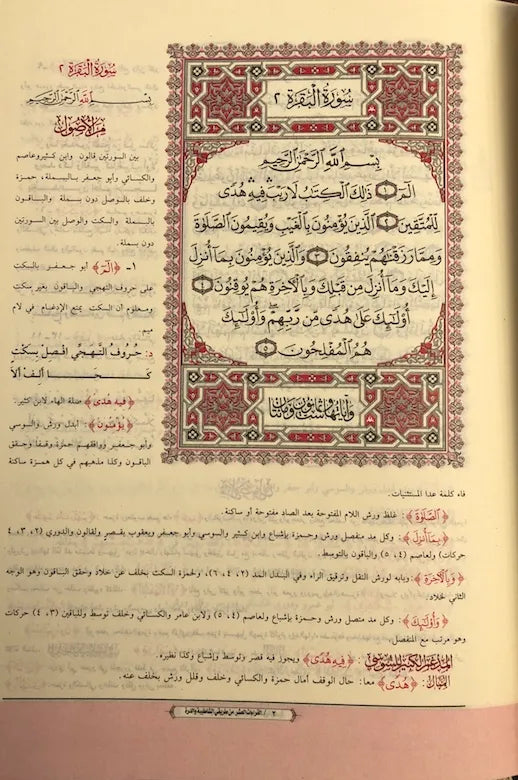 سُورَةُ الْبَقَرَةِ ٢
بِسْمِ اللَّهِ الرَّحْمَٰنِ الرَّحِيمِ
الٓمٓ ١ ذَٰلِكَ الْكِتَٰبُ لَا رَيْبَ فِيهِ هُدًى
لِّلْمُتَّقِينَ ٢ الَّذِينَ يُؤْمِنُونَ بِالْغَيْبِ وَيُقِيمُونَ الصَّلَوٰةَ
وَمِمَّا رَزَقْنَٰهُمْ يُنفِقُونَ ٣ وَالَّذِينَ يُؤْمِنُونَ بِمَآ أُنزِلَ
إِلَيْكَ وَمَآ أُنزِلَ مِن قَبْلِكَ وَبِالْآخِرَةِ هُمْ يُوقِنُونَ ٤
أُولَٰٓئِكَ عَلَىٰ هُدًى مِّن رَّبِّهِمْ وَأُولَٰٓئِكَ
هُمُ الْمُفْلِحُونَ ٥
وَآيَاتُهَا سِتٌّ وَثَمَانُونَ وَمِائَتَانِ
سُورَةُ الْبَقَرَةِ ٢
بِسْمِ اللَّهِ الرَّحْمَٰنِ الرَّحِيمِ
مِنَ الأُصُولِ
بين السورتين قالون وابن كثير وعاصم
والكسائي وأبو جعفر بالبسملة، حمزة
وخلف بالوصل دون بسملة. والباقون
بالبسملة والسكت والوصل بين السورتين
دون بسملة.
١- ﴿الٓمٓ﴾ أبو جعفر بالسكت
على حروف التهجي والباقون بغير سكت
ومعلوم أن السكت يمنع الإدغام في لام
ميم.
د: حُرُوفَ التَّهَجِّي افْصِلْ بِسَكْتٍ
كَحَا أَلِفْ أَلَا
﴿فِيهِ هُدًى﴾ صلة الهاء لابن كثير.
﴿يُؤْمِنُونَ﴾: أبدل ورش والسوسي
وأبو جعفر ووافقهم حمزة وقفاً وحقق
الباقون وكذا مذهبهم في كل همزة ساكنة
فاء كلمة عدا المستثنيات.
﴿الصَّلَوٰةَ﴾: غلظ ورش اللام المفتوحة بعد الصاد مفتوحة أو ساكنة.
﴿بِمَآ أُنزِلَ﴾: وكل مد منفصل ورش وحمزة بإشباع وابن كثير والسوسي وأبو جعفر ويعقوب بقصر ولقالون والدوري (٢، ٣، ٤
حركات) ولعاصم (٤، ٥) والباقون بالتوسط.
﴿وَبِالْآخِرَةِ﴾: وبابه لورش النقل وترقيق الراء وفي البدل المد (٢، ٤، ٦)، ولحمزة السكت بخلف عن خلاد وحقق الباقون وهو الوجه
الثاني لخلاد.
﴿وَأُولَٰٓئِكَ﴾: وكل مد متصل ورش وحمزة بإشباع ولعاصم (٤، ٥) ولابن عامر والكسائي وخلف توسط وللباقين (٣، ٤) حركات
وهو مرتب مع المنفصل.
المدغم الكبير للسوسي: ﴿فِيهِ هُدًى﴾ ويجوز فيه قصر وتوسط وإشباع وكذا نظيره.
الممال: ﴿هُدًى﴾ معا: حال الوقف أمال حمزة والكسائي وخلف وقلل ورش بخلف عنه.
٢ / القراءات العشر من طريقي الشاطبية والدرة